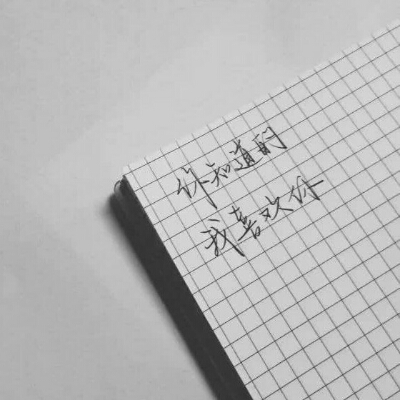 你知道的
我喜欢你